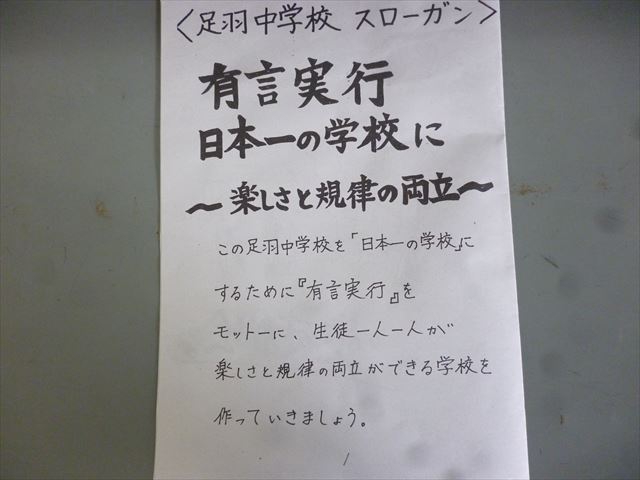 〈足羽中学校 スローガン〉
有言実行
日本一の学校に
～楽しさと規律の両立～
この足羽中学校を「日本一の学校」に
するために『有言実行』を
モットーに、生徒一人一人が
楽しさと規律の両立ができる学校を
作っていきましょう。